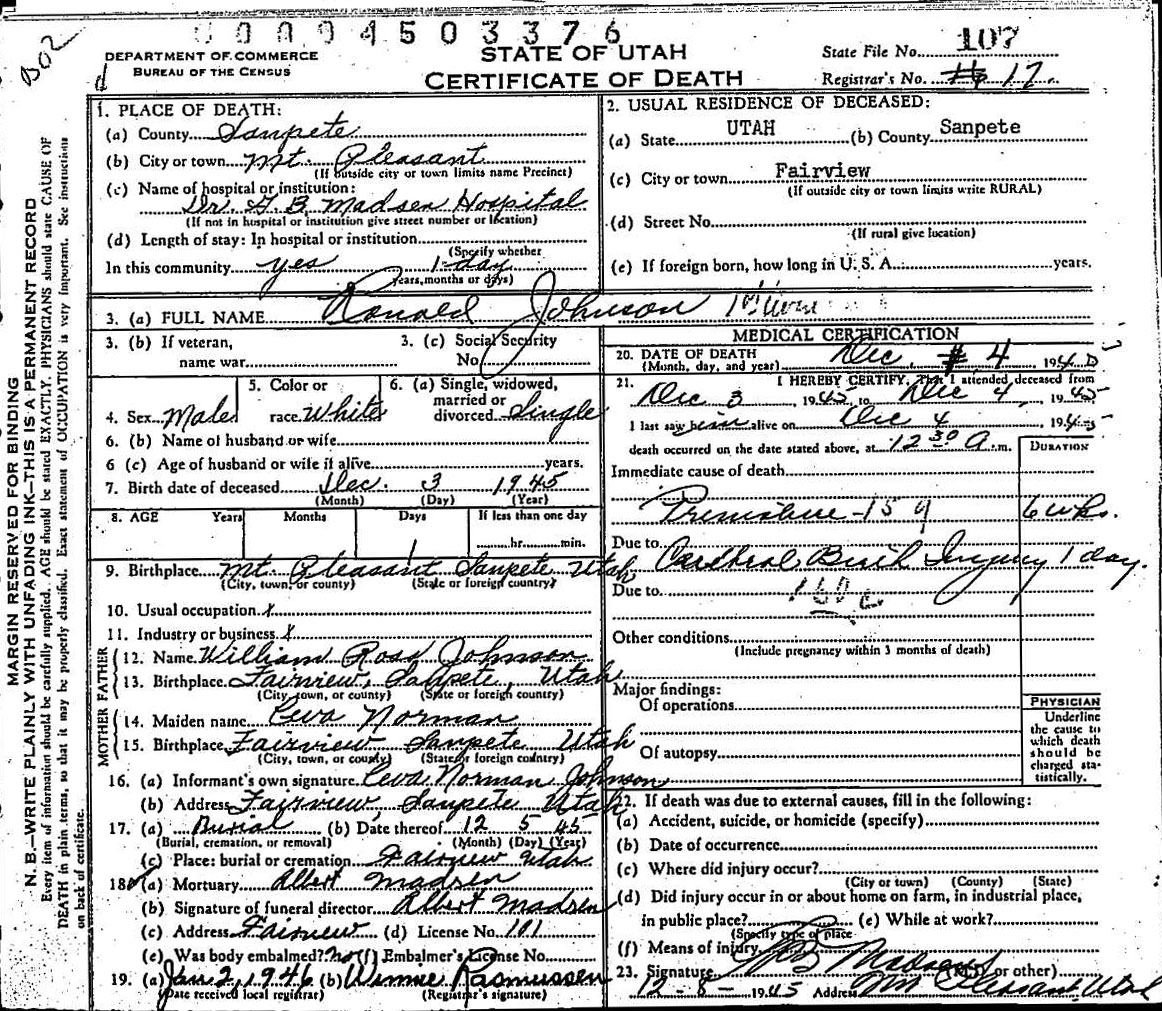 B02
0 0 0 9 4 5 0 3 3 7 6
DEPARTMENT OF COMMERCE
BUREAU OF THE CENSUS
d
STATE OF UTAH
CERTIFICATE OF DEATH
State File No. 107
Registrar's No. 17
MARGIN RESERVED FOR BINDING
N. B.—WRITE PLAINLY WITH UNFADING INK—THIS IS A PERMANENT RECORD
Every item of information should be carefully supplied. AGE should be stated EXACTLY. PHYSICIANS should state CAUSE OF
DEATH in plain terms, so that it may be properly classified. Exact statement of OCCUPATION is very important. See instructions
on back of certificate.
1. PLACE OF DEATH:
(a) County Sanpete
(b) City or town Mt. Pleasant
(If outside city or town limits name Precinct)
(c) Name of hospital or institution:
Dr. G. B. Madsen Hospital
(If not in hospital or institution give street number or location)
(d) Length of stay: In hospital or institution
(Specify whether
In this community yes 1 day
years, months or days)
2. USUAL RESIDENCE OF DECEASED:
(a) State UTAH (b) County Sanpete
(c) City or town Fairview
(If outside city or town limits write RURAL)
(d) Street No.
(If rural give location)
(e) If foreign born, how long in U. S. A. years.
3. (a) FULL NAME Ronald Johnson
3. (b) If veteran,
name war
3. (c) Social Security
No.
4. Sex Male
5. Color or
race White
6. (a) Single, widowed,
married or
divorced Single
6. (b) Name of husband or wife
6 (c) Age of husband or wife if alive years.
7. Birth date of deceased Dec. 3 1945
(Month) (Day) (Year)
8. AGE Years Months Days If less than one day
1 hr. min.
9. Birthplace Mt Pleasant Sanpete Utah
(City, town, or county) (State or foreign country)
10. Usual occupation x
11. Industry or business x
FATHER
12. Name William Ross Johnson
13. Birthplace Fairview, Sanpete, Utah
(City, town, or county) (State or foreign country)
MOTHER
14. Maiden name Leva Norman
15. Birthplace Fairview Sanpete Utah
(City, town, or county) (State or foreign country)
16. (a) Informant's own signature Leva Norman Johnson
(b) Address Fairview, Sanpete Utah
17. (a) Burial (b) Date thereof 12 5 45
(Burial, cremation, or removal) (Month) (Day) (Year)
(c) Place: burial or cremation Fairview Utah
18. (a) Mortuary Albert Madsen
(b) Signature of funeral director Albert Madsen
(c) Address Fairview (d) License No. 101
(e) Was body embalmed? no (f) Embalmer's License No.
19. (a) Jan 2, 1946 (b) Winnie Rasmussen
(Date received local registrar) (Registrar's signature)
MEDICAL CERTIFICATION
20. DATE OF DEATH Dec 4 194
(Month, day, and year)
21. I HEREBY CERTIFY, That I attended deceased from
Dec 3, 1945, to Dec 4, 1945
I last saw him alive on Dec 4 1945
death occurred on the date stated above, at 12 30 A m.
DURATION
Immediate cause of death
Premature - 159 6 wks.
Due to Cerebral Birth Injury 1 day.
Due to 160 c
Other conditions
(Include pregnancy within 3 months of death)
Major findings:
Of operations
Of autopsy
PHYSICIAN
Underline
the cause to
which death
should be
charged sta-
tistically.
22. If death was due to external causes, fill in the following:
(a) Accident, suicide, or homicide (specify)
(b) Date of occurrence
(c) Where did injury occur?
(City or town) (County) (State)
(d) Did injury occur in or about home on farm, in industrial place,
in public place? (e) While at work?
(Specify type of place
(f) Means of injury
23. Signature G B Madsen (M.D. or other)
12 - 8 - 1945 Address Mt Pleasant, Utah